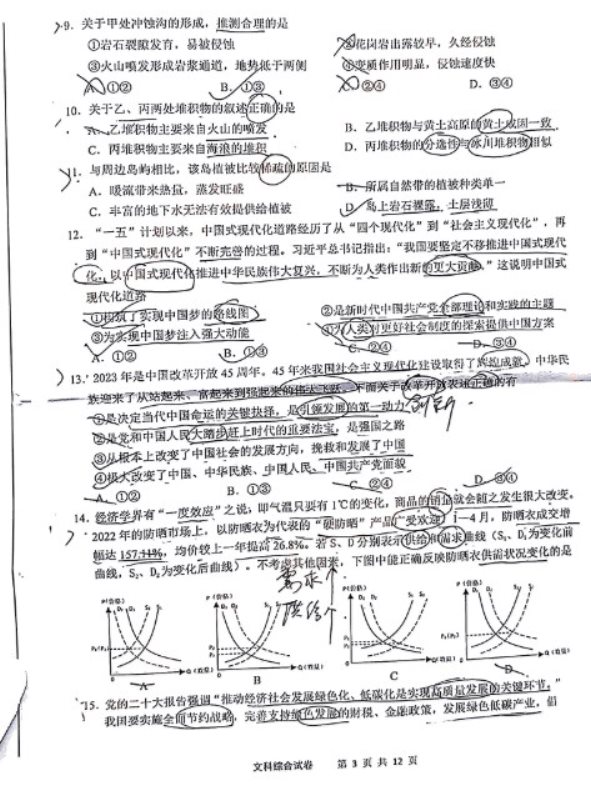 9. 关于甲处冲蚀沟的形成，推测合理的是
①岩石裂隙发育，易被侵蚀 ②花岗岩出露较早，久经侵蚀
③火山喷发形成岩浆通道，地势低于两侧 ④变质作用明显，侵蚀速度快
A. ①② B. ①③ C. ②④ D. ③④
10. 关于乙、丙两处堆积物的叙述正确的是
A. 乙堆积物主要来自火山的喷发 B. 乙堆积物与黄土高原的黄土成因一致
C. 丙堆积物主要来自海浪的堆积 D. 丙堆积物的分选性与冰川堆积物相似
11. 与周边岛屿相比，该岛植被比较稀疏的原因是
A. 暖流带来热量，蒸发旺盛 B. 所属自然带的植被种类单一
C. 丰富的地下水无法有效提供给植被 D. 岛上岩石裸露，土层浅薄
12. “一五”计划以来，中国式现代化道路经历了从“四个现代化”到“社会主义现代化”，再
到“中国式现代化”不断完善的过程。习近平总书记指出：“我国要坚定不移推进中国式现代
化，以中国式现代化推进中华民族伟大复兴，不断为人类作出新的更大贡献。”这说明中国式
现代化道路
①构筑了实现中国梦的路线图 ②是新时代中国共产党全部理论和实践的主题
③为实现中国梦注入强大动能 ④为人类对更好社会制度的探索提供中国方案
A. ①② B. ①③ C. ②④ D. ③④
13. 2023年是中国改革开放45周年。45年来我国社会主义现代化建设取得了辉煌成就，中华民
族迎来了从站起来、富起来到强起来的伟大飞跃。下面关于改革开放表述正确的有
①是决定当代中国命运的关键抉择，是引领发展的第一动力 创新
②是党和中国人民大踏步赶上时代的重要法宝，是强国之路
③从根本上改变了中国社会的发展方向，挽救和发展了中国
④极大改变了中国、中华民族、中国人民、中国共产党面貌
A. ①② B. ①③ C. ②④ D. ③④
14. 经济学界有“一度效应”之说，即气温只要有1℃的变化，商品的销量就会随之发生很大改变。
2022年的防晒市场上，以防晒衣为代表的“硬防晒”产品广受欢迎，1—4月，防晒衣成交增
幅达157.44%，均价较上一年提高26.8%。若S、D分别表示供给和需求曲线（S₁、D₁为变化前
曲线，S₂、D₂为变化后曲线）。不考虑其他因素，下图中能正确反映防晒衣供需状况变化的是
需求↑
供给↑
P(价格) P(价格) P(价格) P(价格)
Q(数量) Q(数量) Q(数量) Q(数量)
A B C D
15. 党的二十大报告强调“推动经济社会发展绿色化、低碳化是实现高质量发展的关键环节。”
我国要实施全面节约战略，完善支持绿色发展的财税、金融政策，发展绿色低碳产业，倡
文科综合试卷 第 3 页 共 12 页